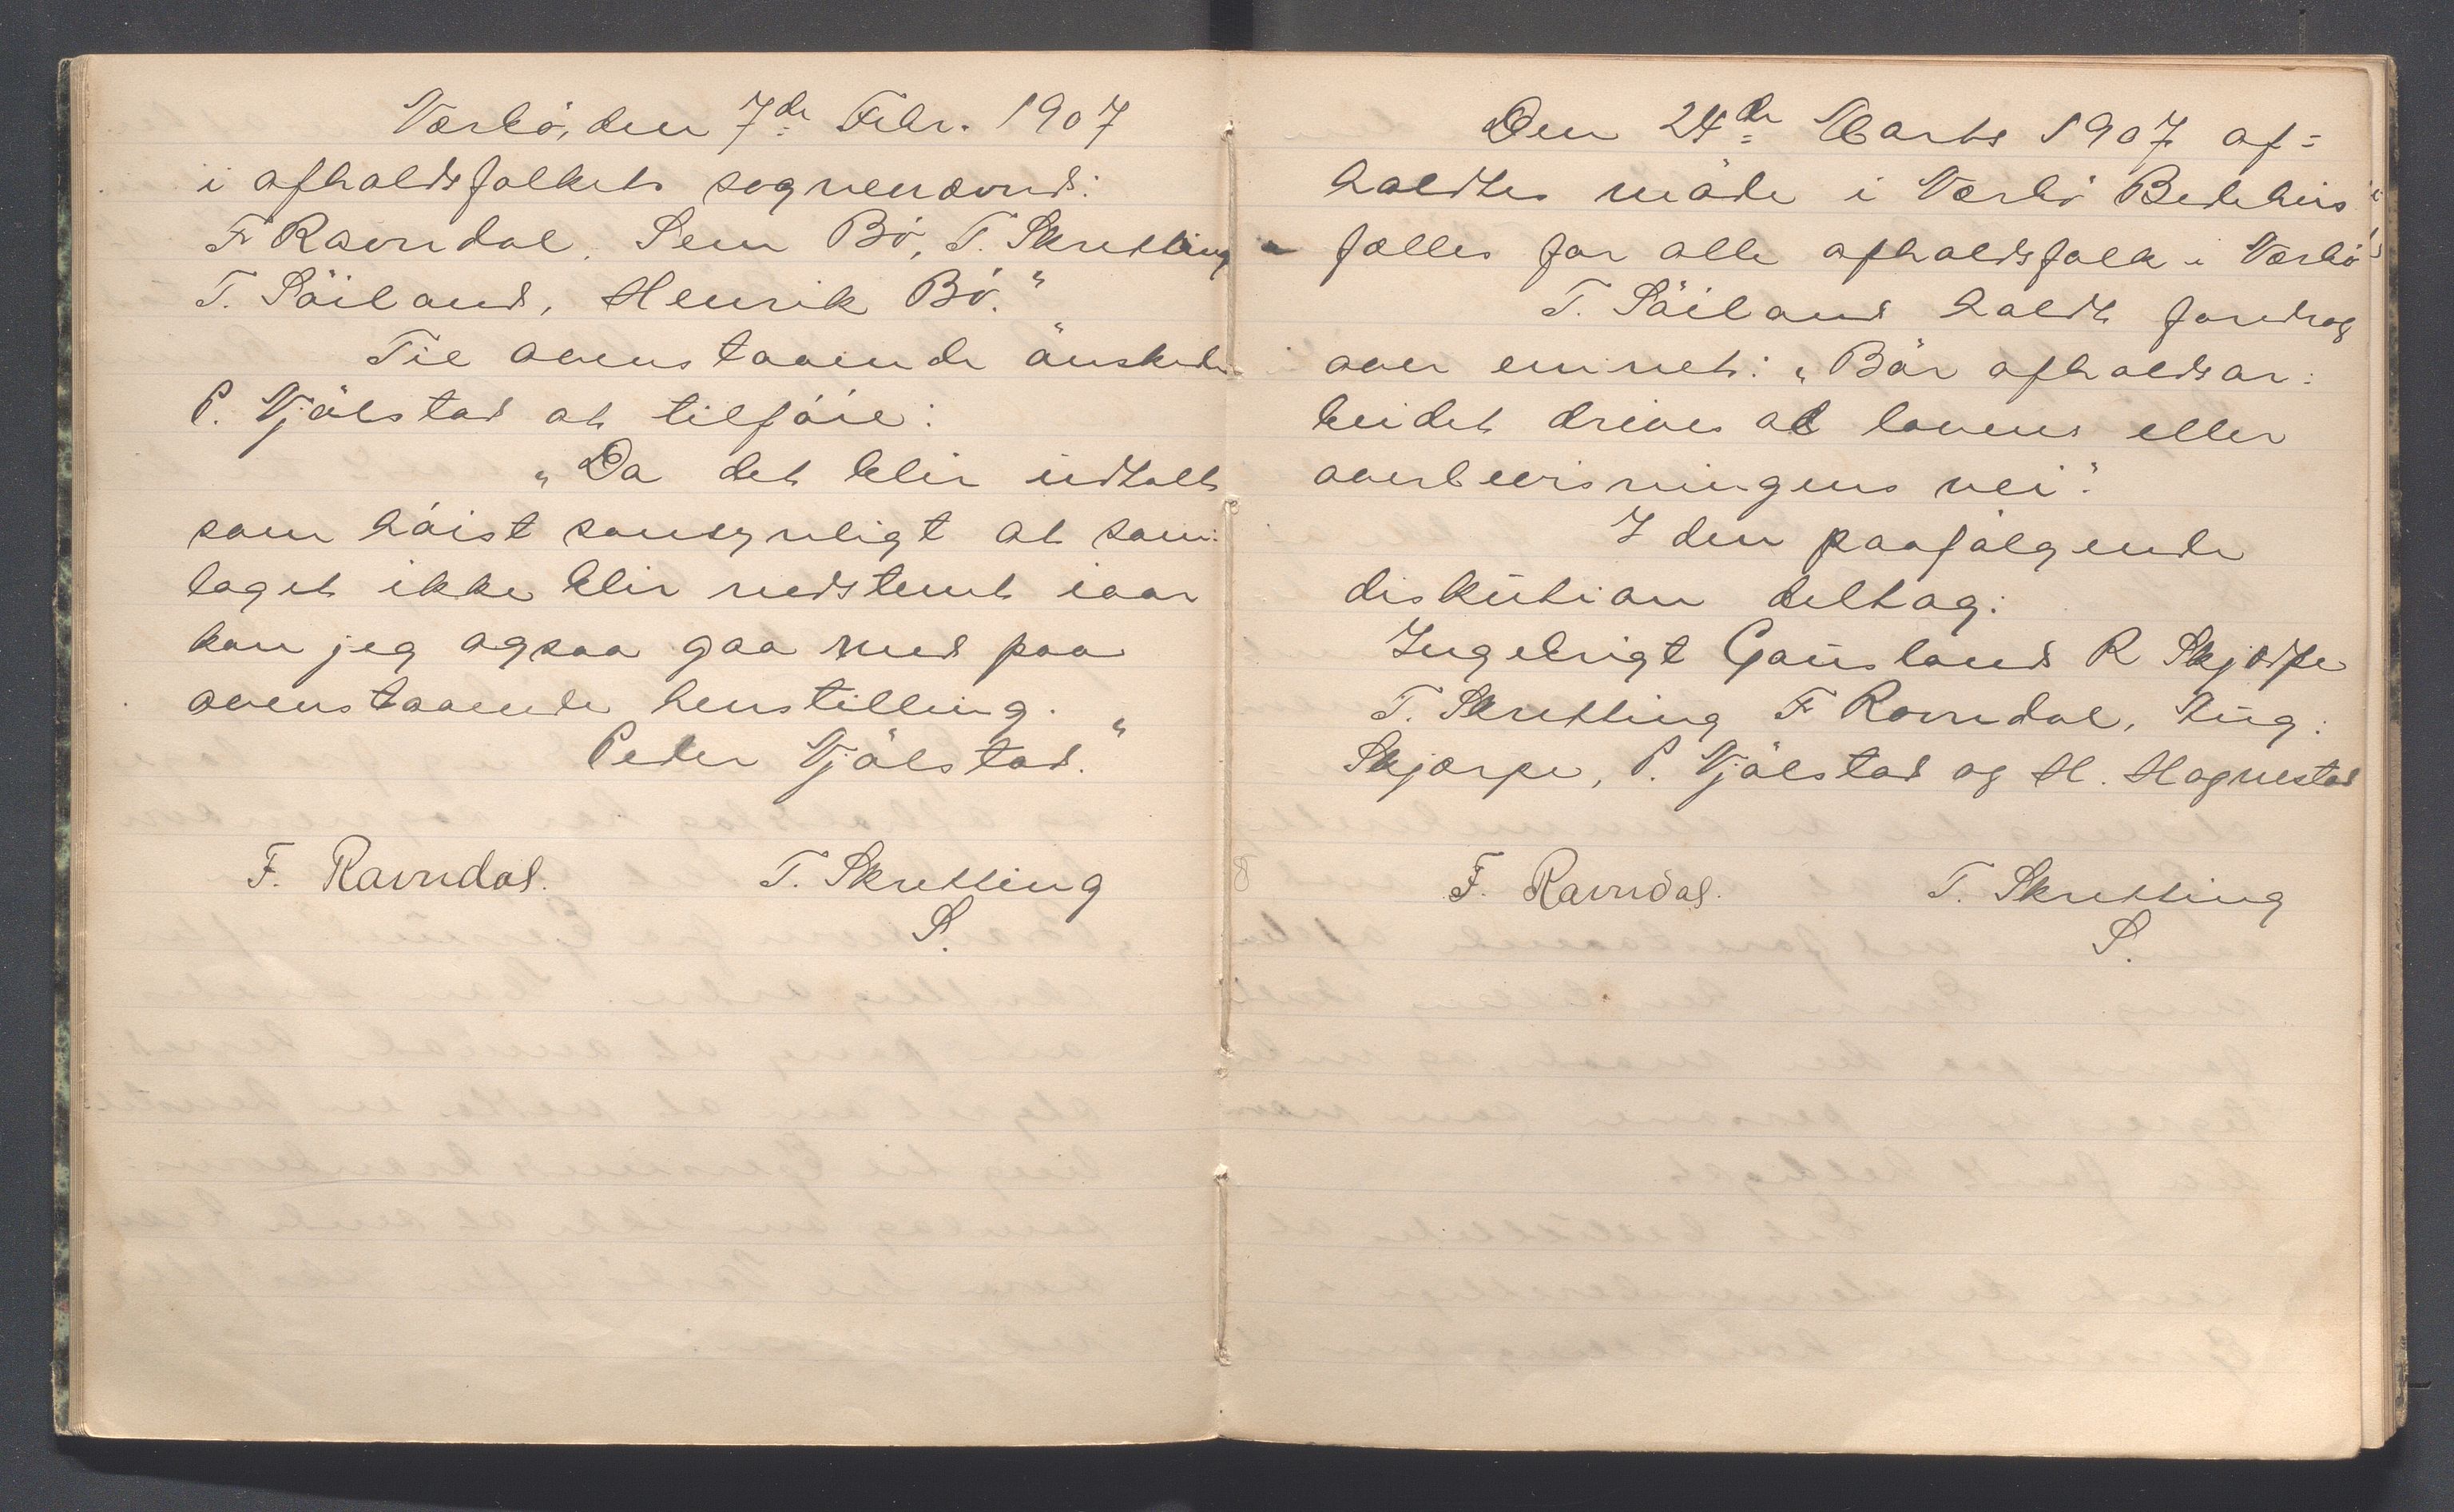 Varhö, den 7de Febr. 1907
i afholdsfolkets sognenævnd:
F Ravndal, Sem Bö, T. Skretting
T. Söiland, Henrik Bö."
Til ovenstaaende önskede
P. Njölstad at tilföie:
„Da det blir udtalt
som höist sansynligt at sam:
laget ikke blir nedstemt iaar
kan jeg ogsaa gaa med paa
ovenstaaende henstilling.
Peder Njölstad."
F. Ravndal. T. Skretting
S.
Den 24de Marts 1907 af=
holdtes möde i Varhö Bedehus
fælles for alle afholdsfolk i Varhö
T. Söiland holdt foredrag
over emnet: „Bör afholdsar:
beidet drives ad lovens eller
overbevisningens vei".
I den paafölgende
diskution deltog:
Ingebrigt Gausland R Skjærpe
T. Skretting F Ravndal, Aug:
Skjærpe, P. Njölstad og H. Hognestad
F. Ravndal. T. Skretting
S.